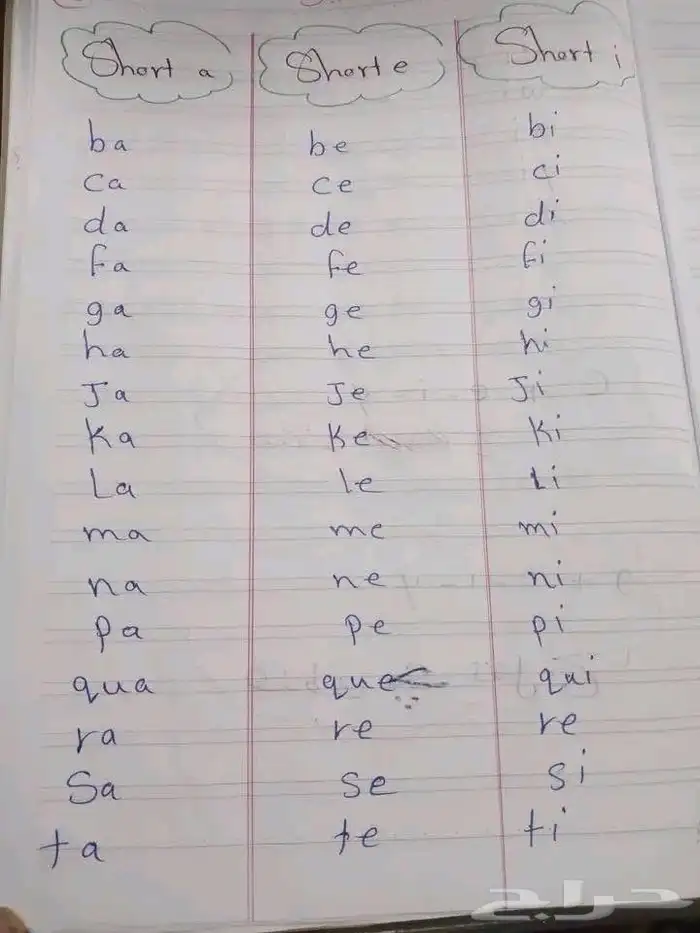 Short a Short e Short i
ba be bi
ca ce ci
da de di
fa fe fi
ga ge gi
ha he hi
Ja Je Ji
Ka Ke Ki
La le Li
ma me mi
na ne ni
pa pe pi
qua que qui
ra re re
Sa se si
ta te ti
حراج